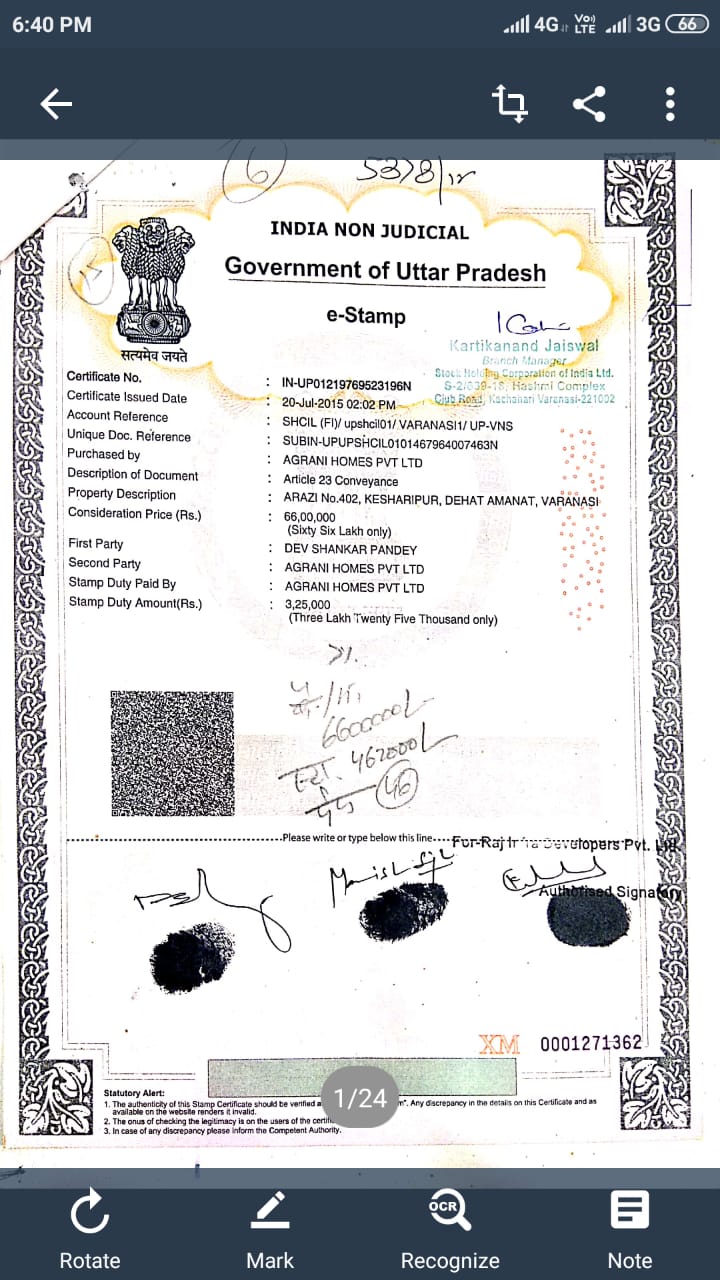 6:40 PM
4G Vo) LTE 3G 66
16
5378/15
15
INDIA NON JUDICIAL
Government of Uttar Pradesh
e-Stamp
सत्यमेव जयते
Kartikanand Jaiswal
Branch Manager
Stock Holding Corporation of India Ltd.
S-2/639-18, Hashmi Complex
Club Road, Kachahari Varanasi-221002
Certificate No. : IN-UP01219769523196N
Certificate Issued Date : 20-Jul-2015 02:02 PM
Account Reference : SHCIL (FI)/ upshcil01/ VARANASI1/ UP-VNS
Unique Doc. Reference : SUBIN-UPUPSHCIL0101467964007463N
Purchased by : AGRANI HOMES PVT LTD
Description of Document : Article 23 Conveyance
Property Description : ARAZI No.402, KESHARIPUR, DEHAT AMANAT, VARANASI
Consideration Price (Rs.) : 66,00,000
(Sixty Six Lakh only)
First Party : DEV SHANKAR PANDEY
Second Party : AGRANI HOMES PVT LTD
Stamp Duty Paid By : AGRANI HOMES PVT LTD
Stamp Duty Amount(Rs.) : 3,25,000
(Three Lakh Twenty Five Thousand only)
6600000/-
स्टा. 462000/-
46
Please write or type below this line
For-Raj Infra Developers Pvt. Ltd.
Manish
Authorised Signatory
XM 0001271362
Statutory Alert:
1. The authenticity of this Stamp Certificate should be verified a
1/24
m". Any discrepancy in the details on this Certificate and as
available on the website renders it invalid.
2. The onus of checking the legitimacy is on the users of the certifi
3. In case of any discrepancy please inform the Competent Authority.
OCR
Rotate
Mark
Recognize
Note